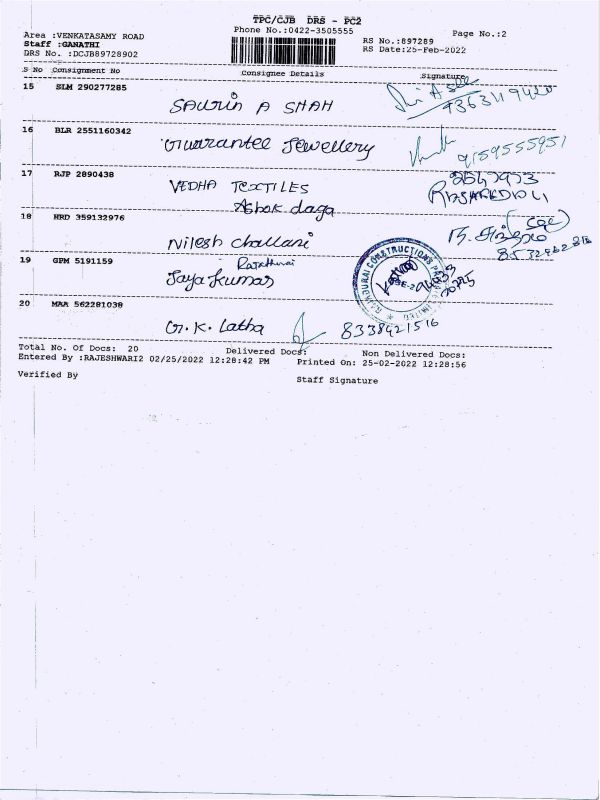 TPC/CJB DRS - PC2
Area :VENKATASAMY ROAD Phone No.:0422-3505555 Page No.:2
Staff :GANATHI RS No.:897289
DRS No. :DCJB89728902 RS Date:25-Feb-2022
S No Consignment No Consignee Details Signature
15 SLM 290277285
SAURIN A SHAH
16 BLR 2551160342
Guarantee Jewellery 9159555951
17 RJP 2890438
VEDHA TEXTILES
Ashok daga
18 HRD 359132976
Nilesh Challani
19 GPM 5191159 Rajathurai
Jaya Kumar
RAJADURAI CONSTRUCTIONS PRIVATE LIMITED
20 MAA 562281038
G. K. Latha 8338921516
Total No. Of Docs: 20 Delivered Docs: Non Delivered Docs:
Entered By :RAJESHWARI2 02/25/2022 12:28:42 PM Printed On: 25-02-2022 12:28:56
Verified By Staff Signature